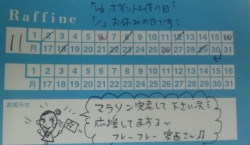 Raffine
ポイント2倍の日
お休みの日です!
11 月 1 2 3 4 5 6 7 8 9 10 11 12 13 14 15 16
17 18 19 20 21 22 23 24 25 26 27 28 29 30 31
月 1 2 3 4 5 6 7 8 9 10 11 12 13 14 15 16
17 18 19 20 21 22 23 24 25 26 27 28 29 30 31
お知らせ
マラソン完走して下さいネ!
応援してますョ〜
フレーフレー 宮西さん♪♪